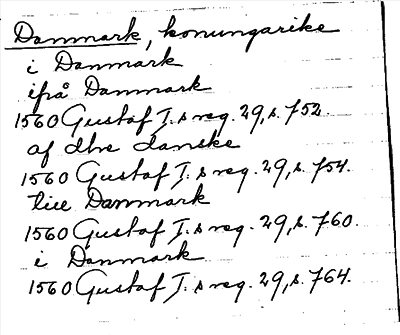 Danmark, konungarike
i Danmark
ifrå Danmark
1560 Gustaf I.s reg. 29, s. 752.
af the danske
1560 Gustaf I.s reg. 29, s. 754.
till Danmark
1560 Gustaf I.s reg. 29, s. 760.
i Danmark
1560 Gustaf I.s reg. 29, s. 764.